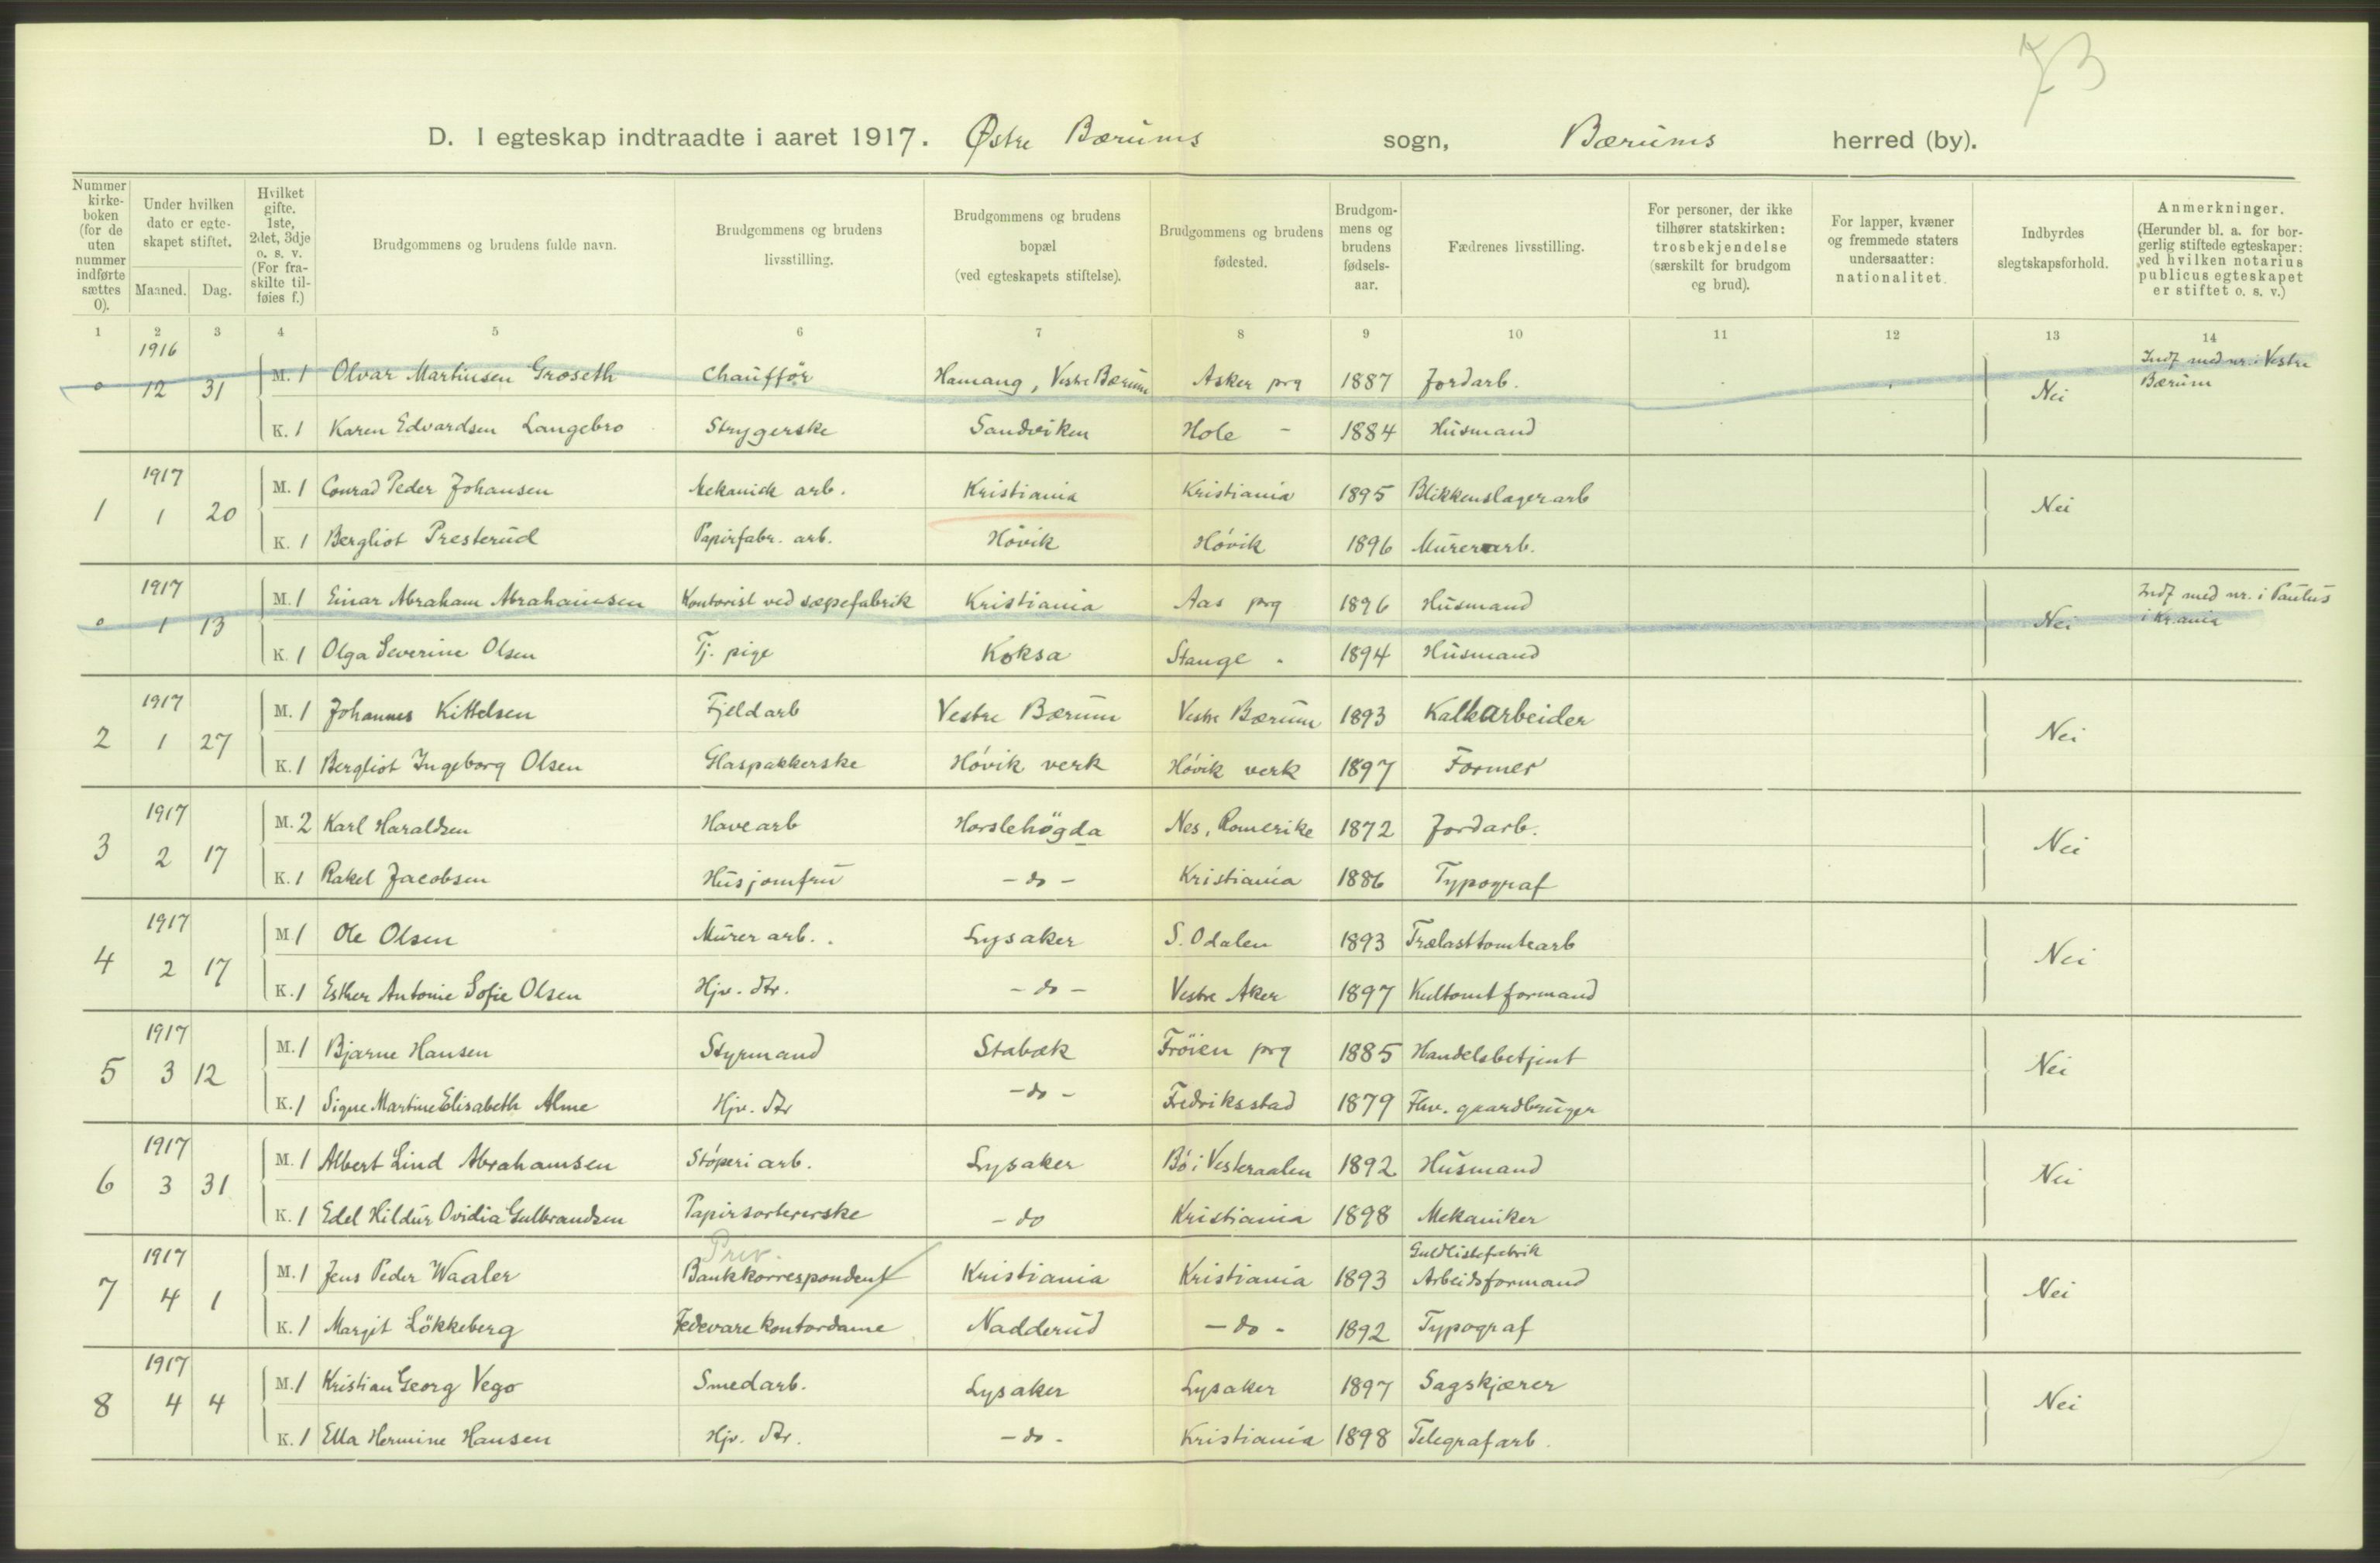 73
D. I egteskap indtraadte i aaret 1917. Østre Bærums sogn, Bærums herred (by).
Nummer kirkeboken (for de uten nummer indførte sættes 0).
Under hvilken dato er egteskapet stiftet.
Maaned. Dag.
Hvilket gifte. 1ste, 2det, 3dje o. s. v. (For fraskilte tilføies f.)
Brudgommens og brudens fulde navn.
Brudgommens og brudens livsstilling.
Brudgommens og brudens bopæl (ved egteskapets stiftelse).
Brudgommens og brudens fødested.
Brudgommens og brudens fødselsaar.
Fædrenes livsstilling.
For personer, der ikke tilhører statskirken: trosbekjendelse (særskilt for brudgom og brud).
For lapper, kvæner og fremmede staters undersaatter: nationalitet.
Indbyrdes slegtskapsforhold.
Anmerkninger. (Herunder bl. a. for borgerlig stiftede egteskaper: ved hvilken notarius publicus egteskapet er stiftet o. s. v.)
1 2 3 4 5 6 7 8 9 10 11 12 13 14
1916
0 12 31 M. 1 Olvar Martinsen Groseth Chauffør Hamang, Vestre Bærum Asker prg 1887 Jordarb. Nei Indf med nr. i Vestre Bærum
K. 1 Karen Edvardsen Langebro Strygerske Sandviken Hole - 1884 Husmand
1917
1 1 20 M. 1 Conrad Peder Johansen Mekanick arb. Kristiania Kristiania 1895 Blikkenslagerarb Nei
K. 1 Bergliot Presterud Papirfabr. arb. Høvik Høvik 1896 Murerarb.
1917
0 1 13 M. 1 Einar Abraham Abrahamsen Kontorist ved sæpefabrik Kristiania Aas prg 1896 Husmand Nei Indf med nr. i Paulus i Kr.ania
K. 1 Olga Severine Olsen Tj. pige Koksa Stange - 1894 Husmand
1917
2 1 27 M. 1 Johannes Kittelsen Fjeldarb Vestre Bærum Vestre Bærum 1893 Kalkarbeider Nei
K. 1 Bergliot Ingeborg Olsen Glaspakkerske Høvik verk Høvik verk 1897 Former
1917
3 2 17 M. 2 Karl Haraldsen Havearb Horslehögda Nes, Romerike 1872 Jordarb. Nei
K. 1 Rakel Jacobsen Husjomfru - do - Kristiania 1886 Typograf
1917
4 2 17 M. 1 Ole Olsen Murer arb. Lysaker S. Odalen 1893 Trælasttomtearb Nei
K. 1 Esther Antonie Sofie Olsen Hjv. dtr. - do - Vestre Aker 1897 Kultomtformand
1917
5 3 12 M. 1 Bjarne Hansen Styrmand Stabæk Fröien prg 1885 Handelsbetjent Nei
K. 1 Signe Martine Elisabeth Alme Hjv. dtr - do - Fredriksstad 1879 Fhv. gaardbruger
1917
6 3 31 M. 1 Albert Lind Abrahamsen Støperi arb. Lysaker Bø i Vesteraalen 1892 Husmand Nei
K. 1 Edel Hildur Ovidia Gulbrandsen Papirsortererske - do Kristiania 1898 Mekaniker
1917 Priv. Guldlistefabrik
7 4 1 M. 1 Jens Peder Waaler Bankkorrespondent Kristiania Kristiania 1893 Arbeidsformand Nei
K. 1 Margit Lökkeberg Fedevare kontordame Nadderud - do - 1892 Typograf
1917
8 4 4 M. 1 Kristian Georg Vego Smedarb. Lysaker Lysaker 1897 Sagskjærer Nei
K. 1 Ella Hermine Hansen Hjv. dtr. - do - Kristiania 1898 Telegrafarb.